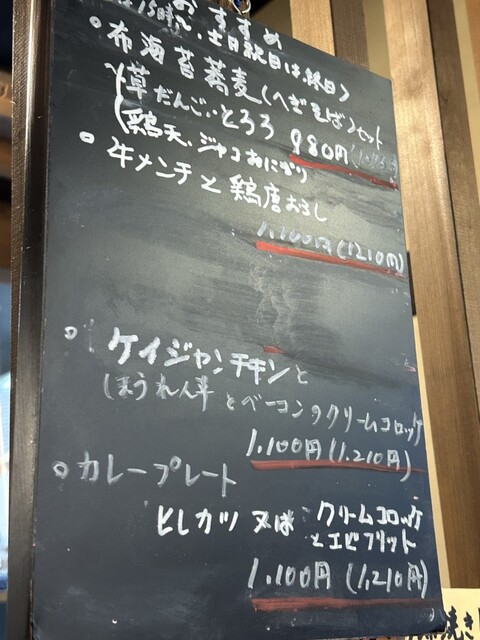 おすすめ
15時〜、土日祝日は、終日〉
布海苔蕎麦(へぎそば)セット
草だんご、とろろ
鶏天、ジャコおにぎり
980円
牛メンチと鶏唐おろし
1,100円(1210円)
ケイジャンチキンと
ほうれん草とベーコンのクリームコロッケ
1.100円(1.210円)
カレープレート
ヒレカツ 又は クリームコロッケ
とエビフリット
1.100円(1,210円)